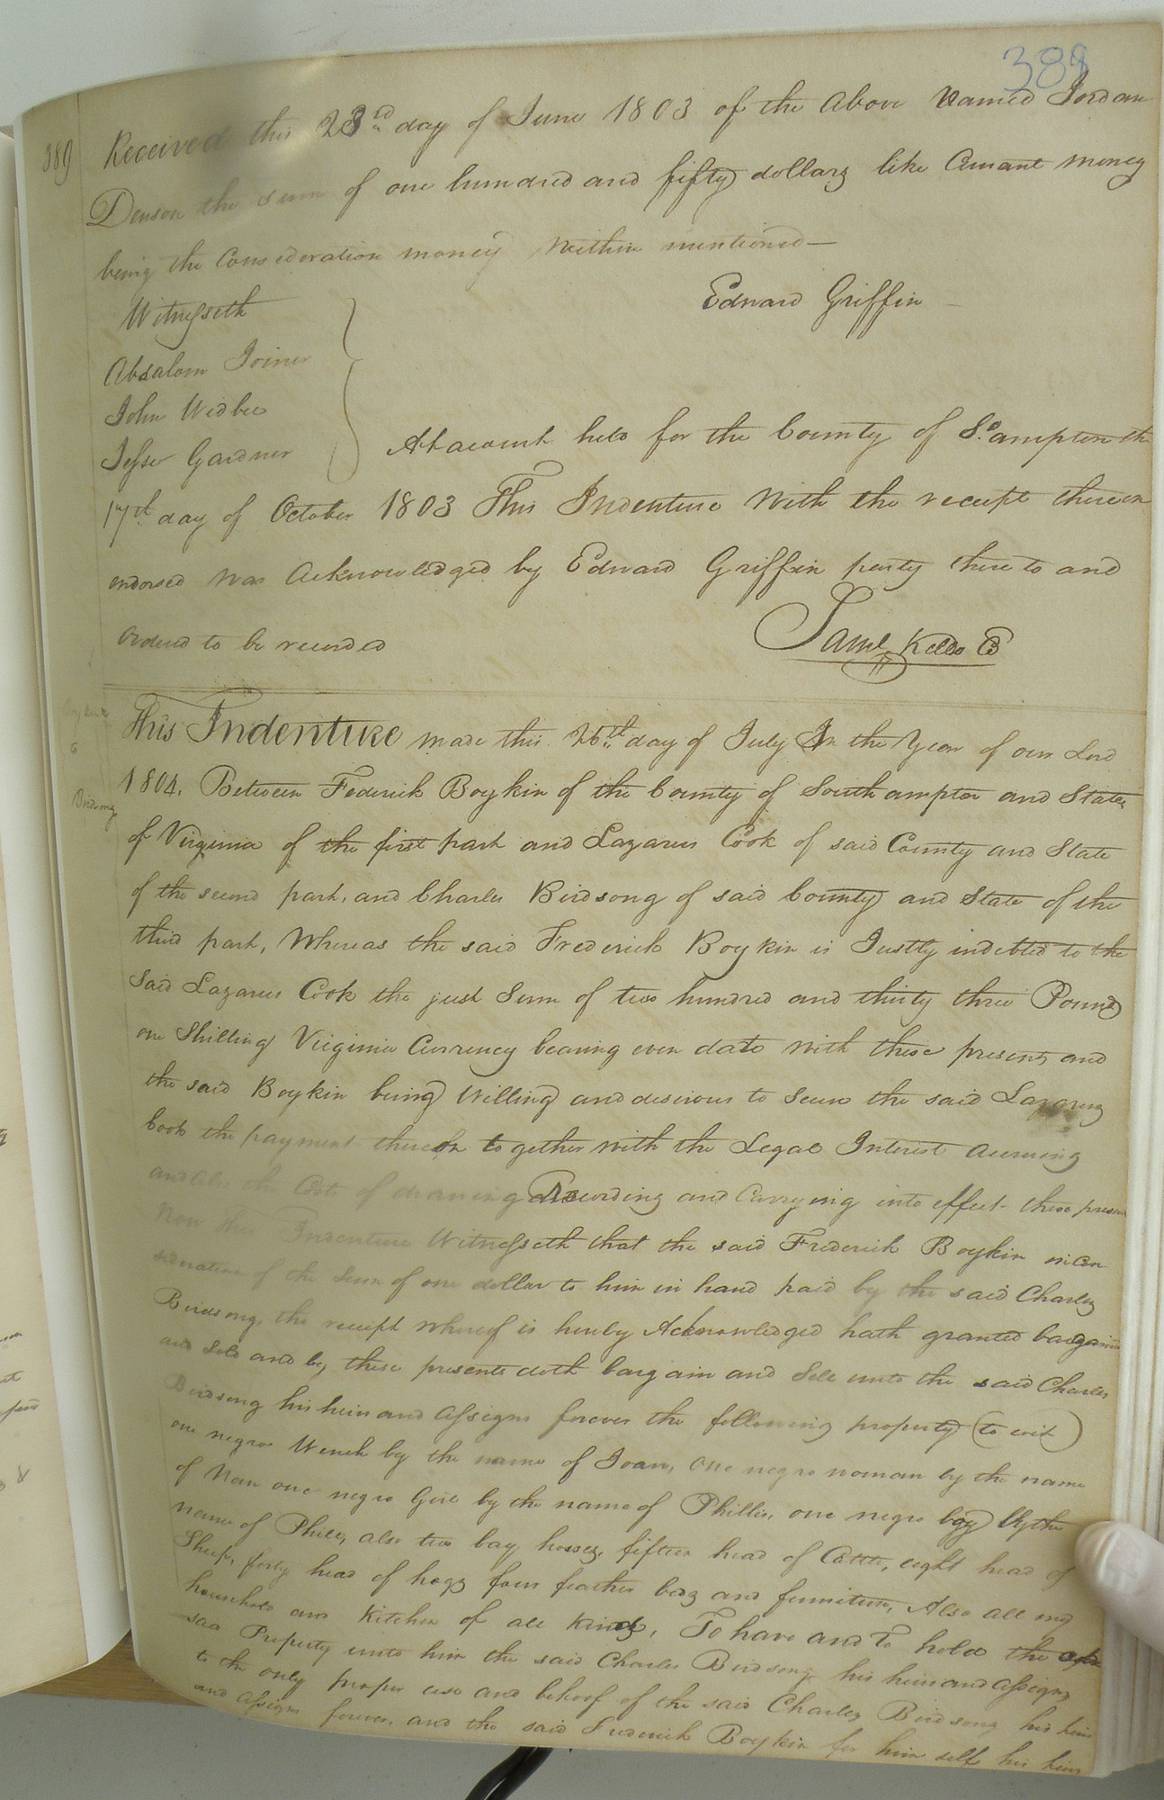 388
389
Received this 23rd day of June 1803 of the above Named Jordan
Denson the sum of one hundred and fifty dollars like Curant money
being the Consideration money Within mentioned —
Edward Griffin —
Witnesseth
Absalom Joiner
John Wedbee
Jesse Gardner
At a court held for the County of So.ampton the
17th day of October 1803 This Indenture With the receipt thereon
endorsed was Acknowledged by Edward Griffin party there to and
ordered to be recorded
Saml Kello C
to
Birdsong
This Indenture made this 26th day of July In the Year of our Lord
1804. Between Federick Boykin of the County of Southampton and State
of Virginia of the first part and Lazarus Cook of said County and State
of the second part, and Charles Birdsong of said County and State of the
third part, Whereas the said Frederick Boykin is Justly indebted to the
Said Lazarus Cook the just Sum of two hundred and thirty three Pound
one Shilling Virginia Currency bearing even date with these presents and
the said Boykin being Willing and desirous to Secure the said Lazarus
Cook the payment thereon together with the Legal Interest accruing
and also the Costs of drawing Recording and Carrying into effect these presents
Now this Indenture Witnesseth that the said Frederick Boykin in con
sideration of the Sum of one dollar to him in hand paid by the said Charles
Birdsong, the receipt whereof is hereby Acknowledged hath granted bargained
and Sold and by these presents doth bargain and Sell unto the said Charles
Birdsong his heirs and Assigns forever the following property (to wit)
one negro Wench by the name of Joan, one negro woman by the name
of Nan one negro Girl by the name of Phillis, one negro boy by the
name of Phill, also two bay horses, fifteen head of Cattle, eight head of
Sheep, forty head of hogs four feather beds and furniture, Also all my
household and Kitchen of all Kinds, To have and To hold the
said Property unto him the said Charles Birdsong his heirs and Assigns
to the only proper use and behoof of the said Charles Birdsong his heirs
and Assigns forever, and the said Frederick Boykin for him self his heirs